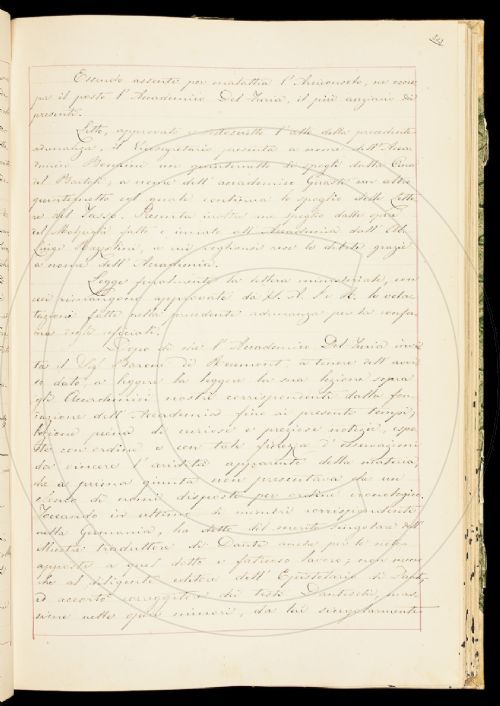 Essendo assente per malattia l'Arciconsolo, ne occu-
pa il posto l'Accademico Del Furia, il più anziano dei
presenti.
Letto, approvato e sottoscritto l'atto della precedente
adunanza, il Vicesegretario presenta a nome dell'Acca-
demico Bencini un quintinetto di spogli dalla Cura
del Bartoli, a nome dell'accademico Grassi un altro
quintinetto col quale continua lo spoglio delle Lette-
re del Tasso. Presenta inoltre uno spoglio dalle opere
del Malpighi fatto e inviato all'Accademia dall'Ab.
Luigi Razzolini, a cui voglionsi rese le debite grazie
a nome dell'Accademia.
Legge finalmente la lettera ministeriale, con
cui rimangono approvate da S. A. I. e R. le vota-
zioni fatte nella precedente adunanza per la confer-
ma degli ufiziali.
Dopo di che l'Accademico Del Furia invi-
ta il Sig. Barone de Reumont, a tenore dell'avvi-
so dato, a leggere la sua lezione sopra
gli Accademici nostri corrispondenti dalla fon-
dazione dell'Accademia fino ai presenti tempi;
lezione piena di curiose e preziose notizie, espo-
ste con ordine e con tale finezza d'osservazioni
da vincere l'aridità apparente della materia,
che a prima giunta non presentava che un
elenco di nomi disposti per ordine cronologico.
Toccando in ultimo di membri corrispondenti
nella Germania, ha detto del merito singolare dell'
Illustre traduttore di Dante anche per le note
apposte a quel dotto e faticoso lavoro; non meno
che al diligente editore dell'Epistolario di Dante,
ed accorto correggitore di testi Danteschi, mas-
sime nelle opere minori, da lui singolarmente